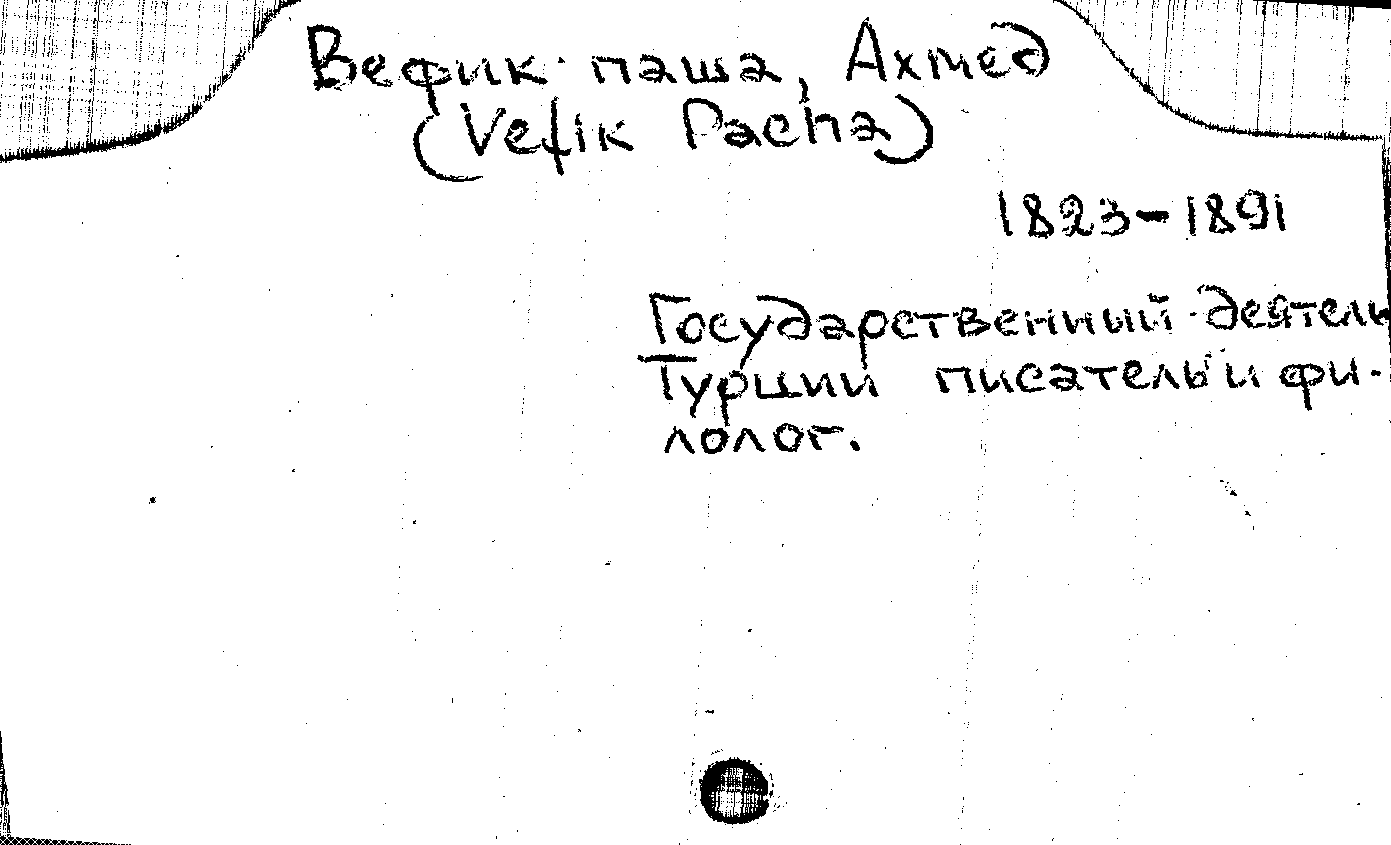 Вефик-паша, Ахмед
(Vefik Pacha)
1823-1891
Государственный деятель
Турции писатель и фи-
лолог.